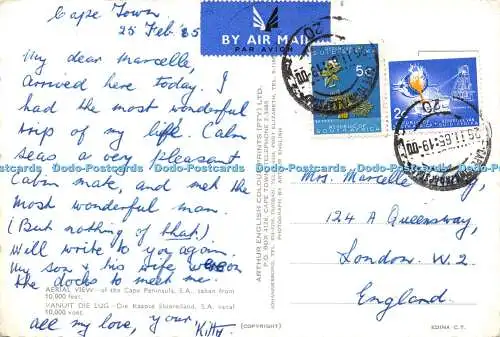 Cape Town
25 Feb 65
My dear Marcelle,
Arrived here today. I
had the most wonderful
trip of my life. Calm
seas a very pleasant
Cabin mate, and met the
most wonderful man.
(But nothing of that!)
Will write to you again.
My son & his wife were on
the docks to meet me.
AERIAL VIEW — of the Cape Peninsula, S.A. taken from
10,000 feet.
VANUIT DIE LUG — Die Kaapse Skiereiland, S.A. vanaf
10,000 voet.
all my love, your Kitty
(COPYRIGHT)
ARTHUR ENGLISH COLOUR PRINTS (PTY) LTD.
BY AIR MAIL
PAR AVION
5c
SOUTH AFRICA
2
Mrs. Marcelle
124 A Queensway,
London. W.2.
England.
Dodo-Postcards Dodo-Postcards Dodo-Postcards Dodo-Postcards Dodo-Postcards